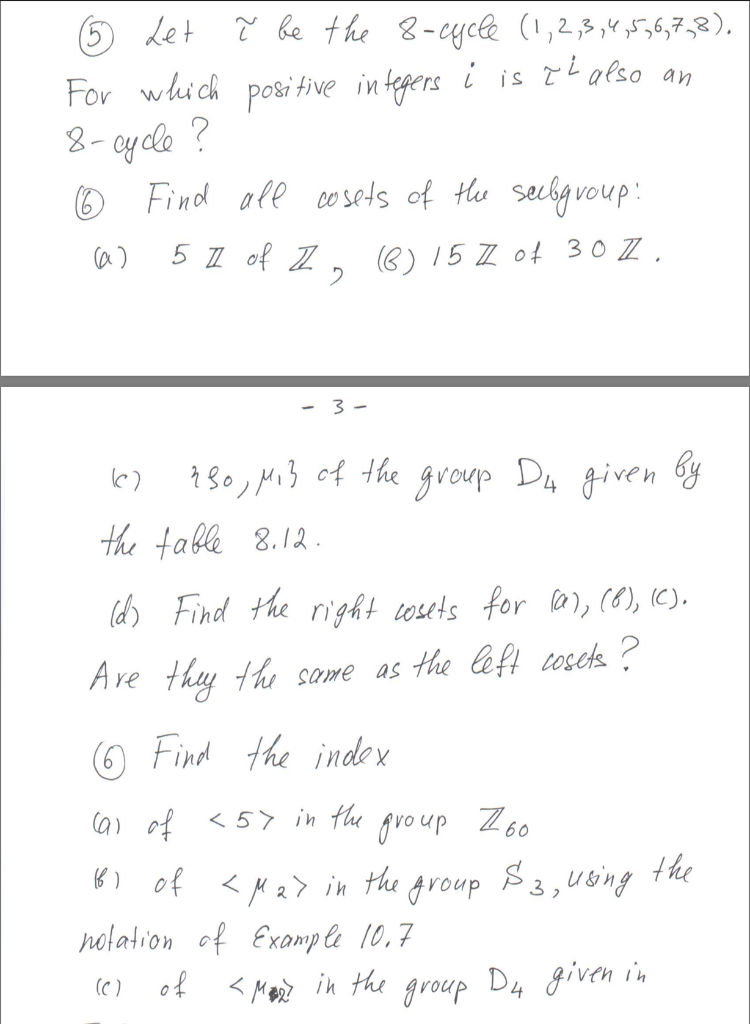 ⑤ Let τ be the 8-cycle (1,2,3,4,5,6,7,8).
For which positive integers i is τ^i also an
8-cycle?
⑥ Find all cosets of the subgroup:
(a) 5ℤ of ℤ, (b) 15ℤ of 30ℤ.
- 3 -
(c) {ρ0, μ1} of the group D4 given by
the table 8.12.
(d) Find the right cosets for (a), (b), (c).
Are they the same as the left cosets?
⑥ Find the index
(a) of <5> in the group ℤ60
(b) of <μ2> in the group S3, using the
notation of Example 10.7
(c) of <μ2> in the group D4 given in